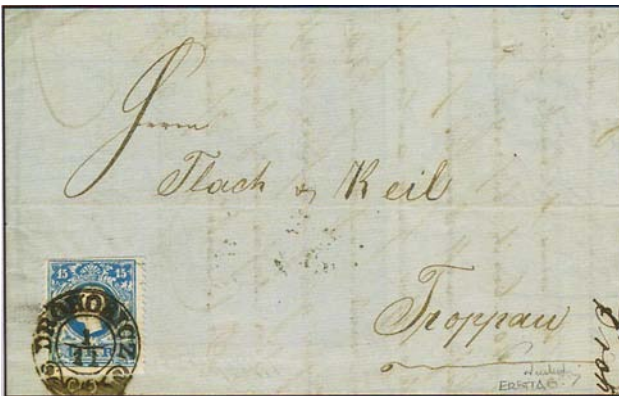 Herrn
Flach & Keil
Troppau
15 15
DROHOBYCZ
1
11
ERSTTAG